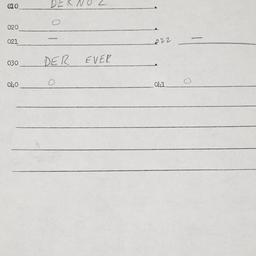 010 DERNO2
020 O
021 — 022 —
030 DER EVER
040 O 041 O